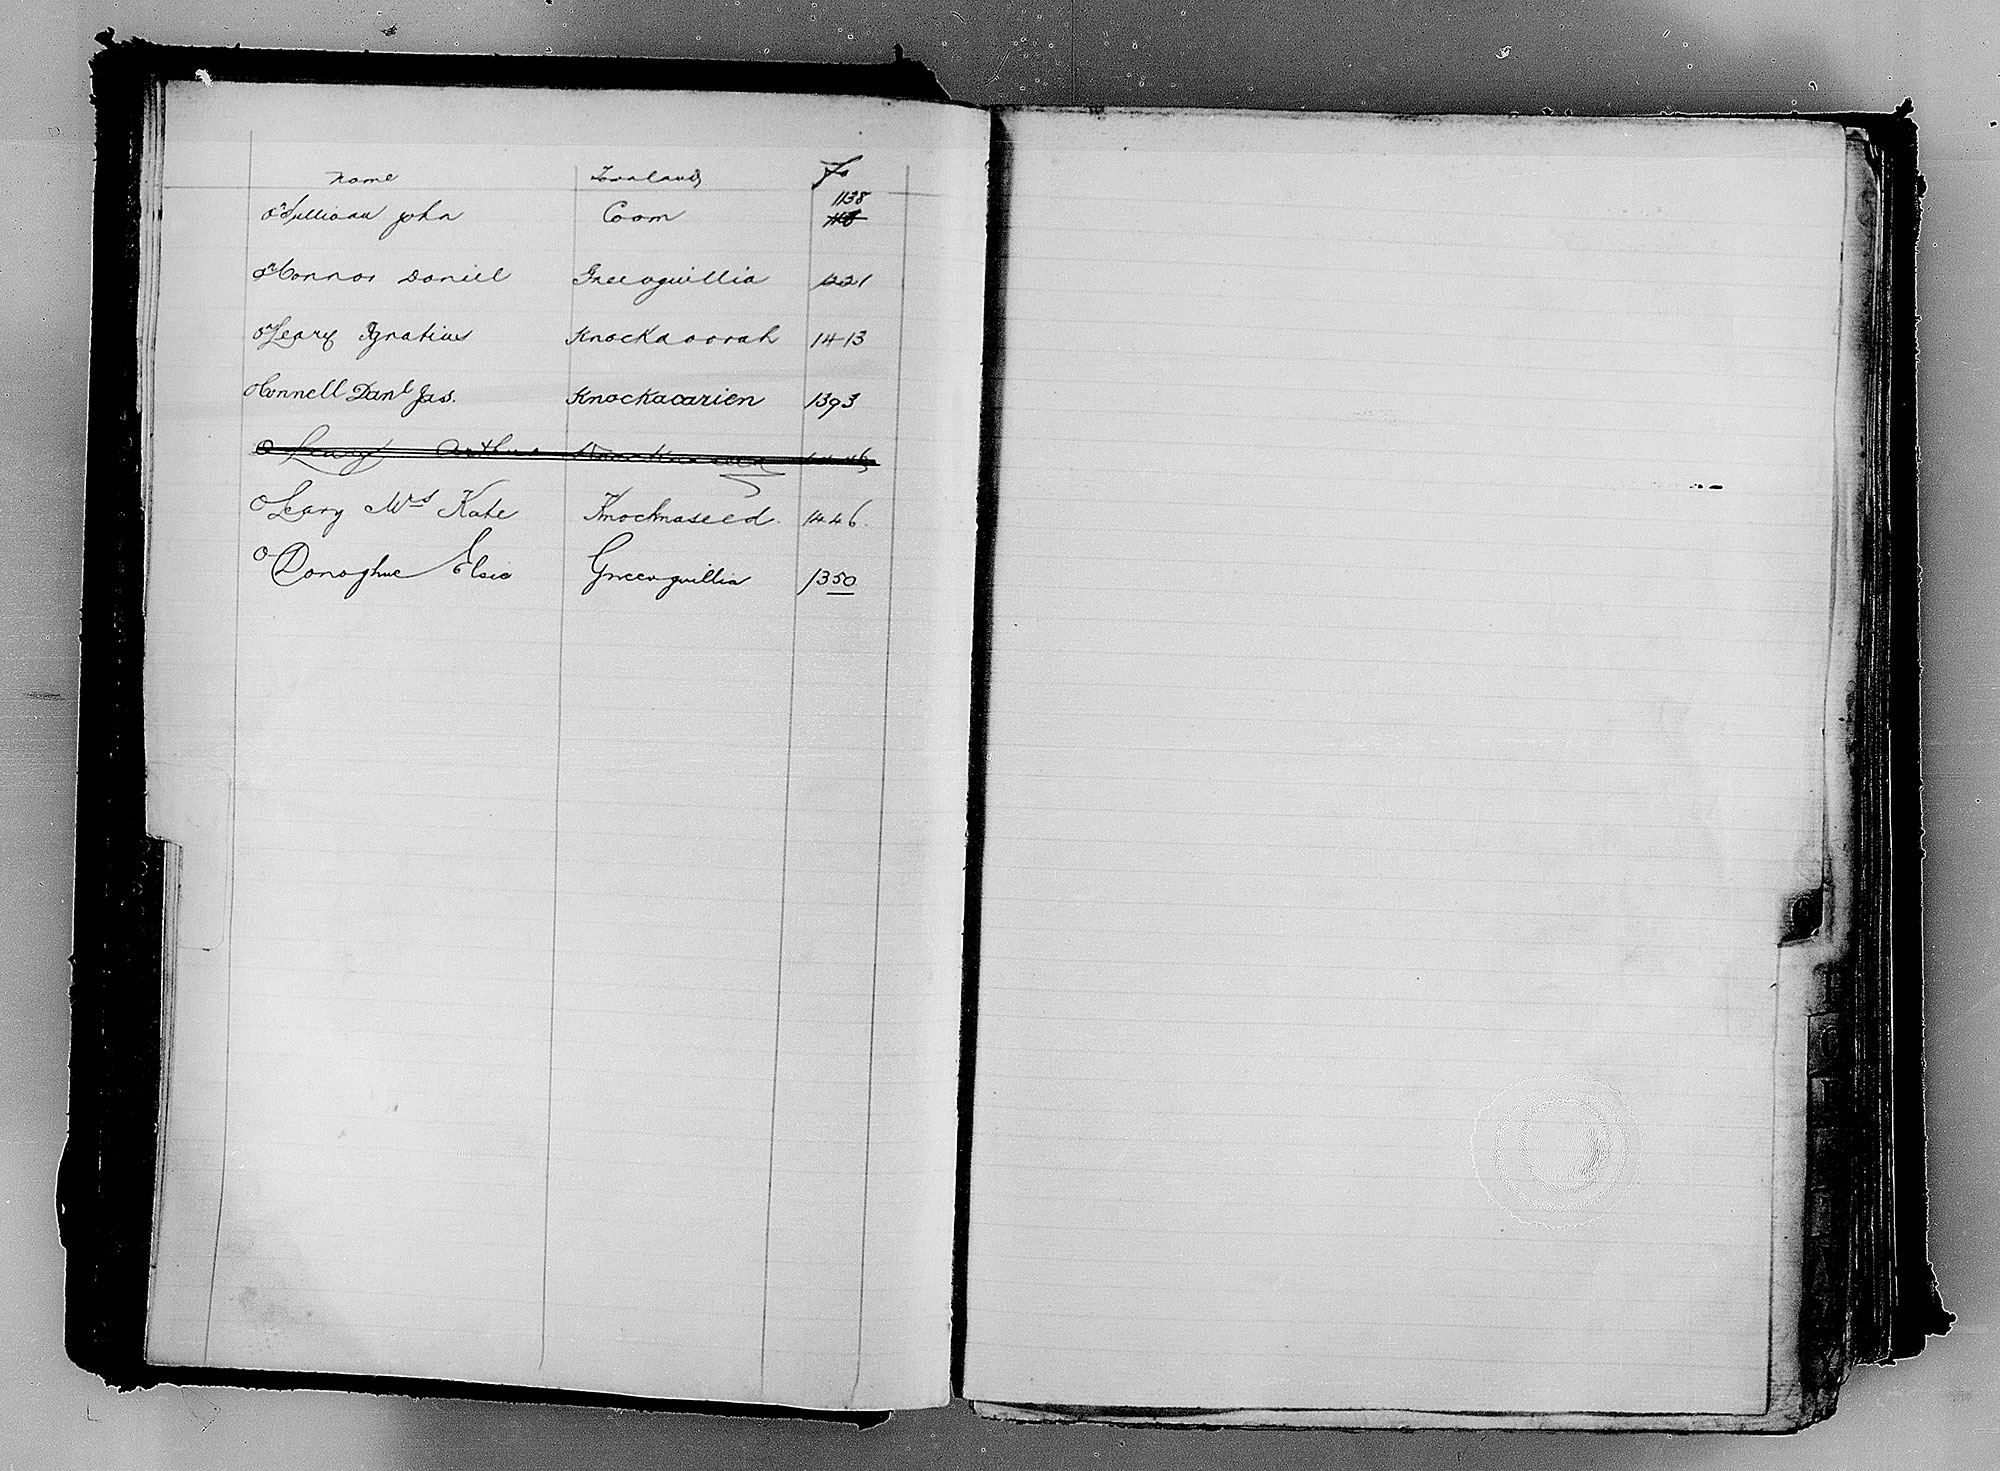 Name Townland Fo
O'Sullivan John Coom 1138
118
O'Connor Daniel Gneevguillia 1221
O'Leary Ignatius Knockdoorah 1413
O'Connell Danl Jas. Knockacarien 1393
O Leary Arthur
O Leary Mrs Kate Knocknaseed 1446.
O Donoghue Elsie Gneevguillia 1350